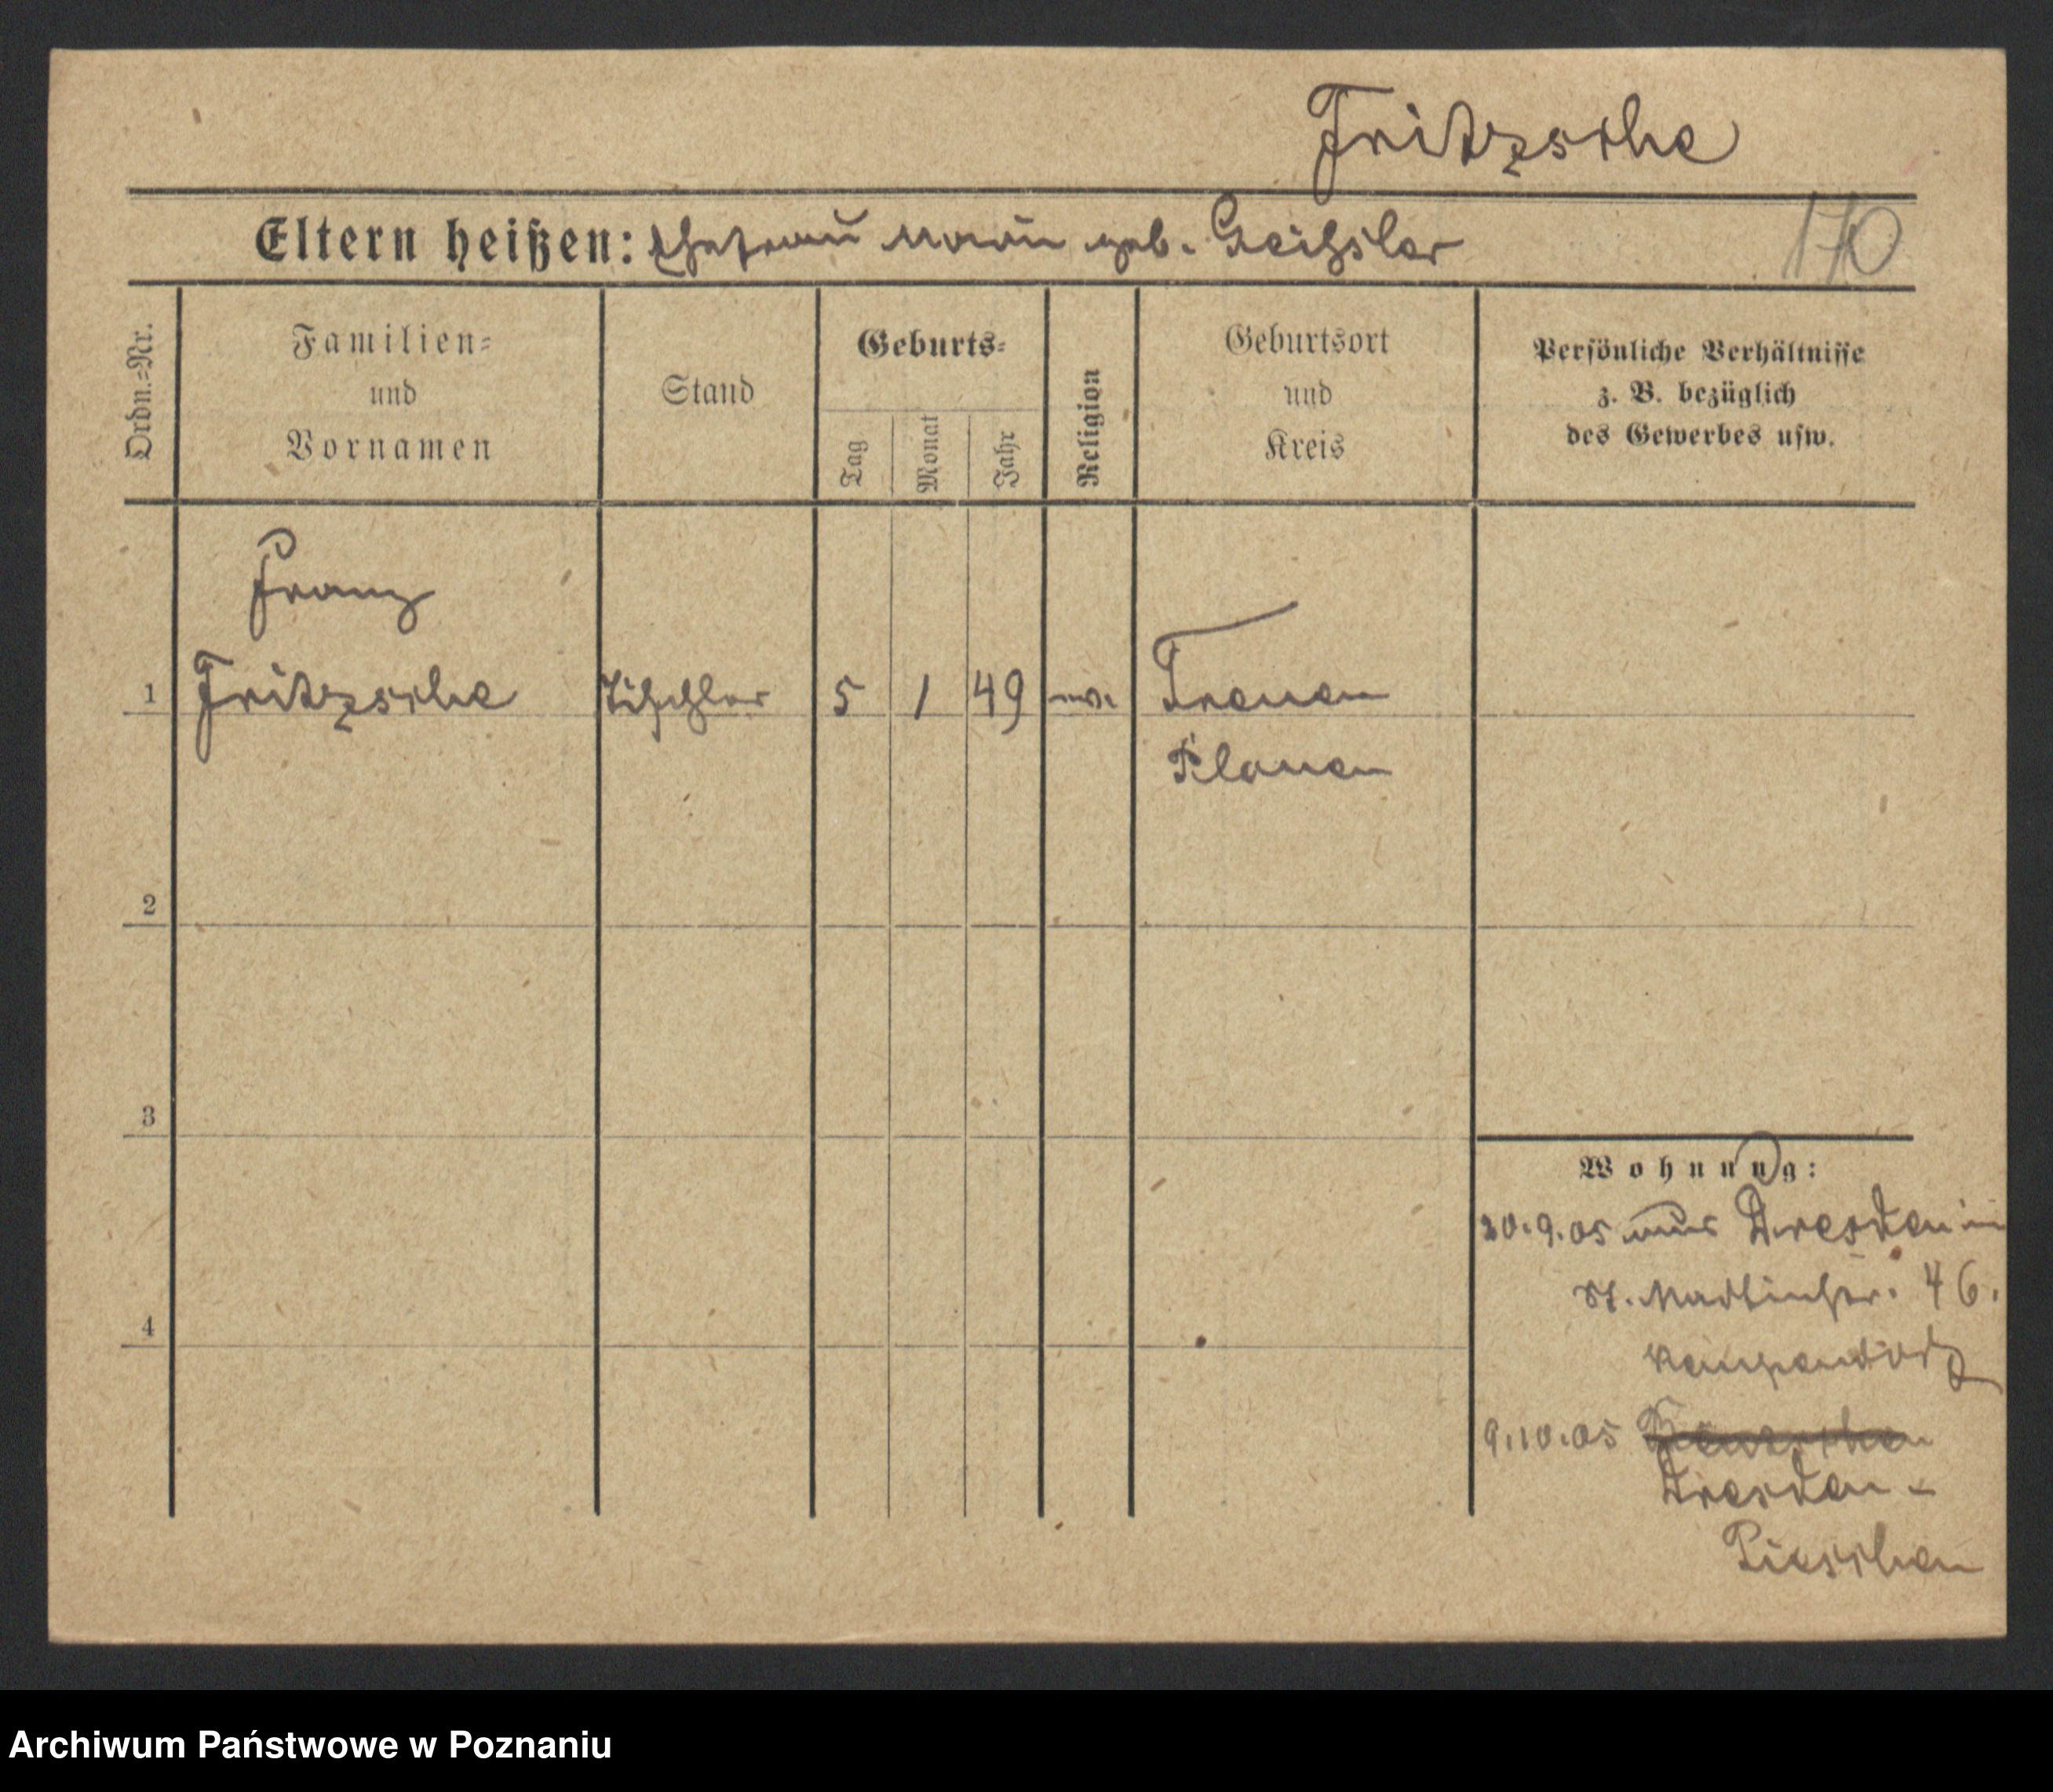 Fritzsche
Eltern heißen: Ehefrau Marie geb. Geißsler
170
Ordn.-Nr.
Familien-
und
Vornamen
Stand
Geburts-
Tag
Monat
Jahr
Religion
Geburtsort
und
Kreis
Persönliche Verhältnisse
z. B. bezüglich
des Gewerbes usw.
Franz
1 Fritzsche Tischler 5 1 49 ev. Treuen
Plauen
2
3
4
Wohnung:
20.9.05 aus Dresden in
St. Martinstr. 46.
9.10.05
Dresden-
Pieschen
Archiwum Państwowe w Poznaniu